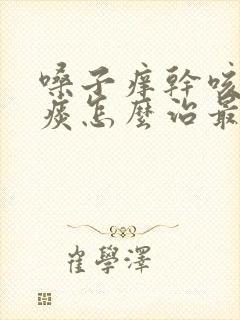 嗓子痒幹咳
痰怎麼治最
崔學澤